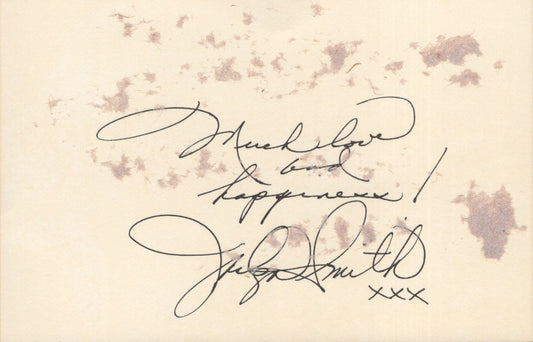 Much love
and
happiness!
Jaclyn Smith
xxx